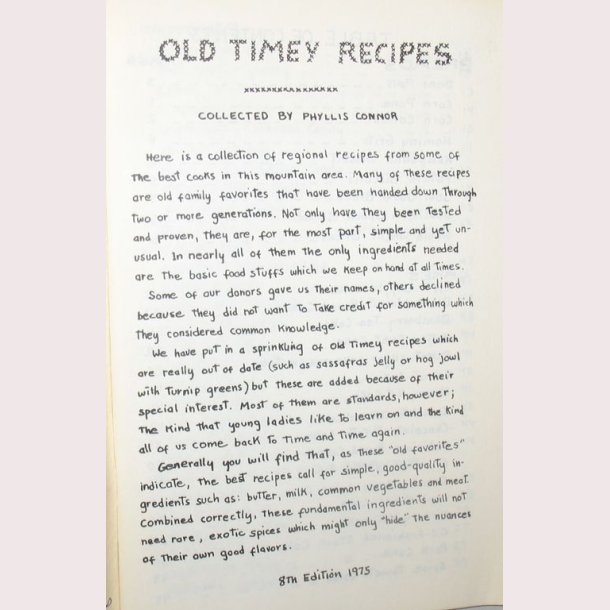 OLD TIMEY RECIPES
xxxxxxxxxxxxxxxxx
COLLECTED BY PHYLLIS CONNOR
Here is a collection of regional recipes from some of
the best cooks in this mountain area. Many of these recipes
are old family favorites that have been handed down through
two or more generations. Not only have they been tested
and proven, they are, for the most part, simple and yet un-
usual. In nearly all of them the only ingredients needed
are the basic food stuffs which we keep on hand at all times.
Some of our donors gave us their names, others declined
because they did not want to take credit for something which
they considered common knowledge.
We have put in a sprinkling of Old Timey recipes which
are really out of date (such as sassafras jelly or hog jowl
with turnip greens) but these are added because of their
special interest. Most of them are standards, however;
the kind that young ladies like to learn on and the kind
all of us come back to time and time again.
Generally you will find that, as these "old favorites"
indicate, the best recipes call for simple, good-quality in-
gredients such as: butter, milk, common vegetables and meat.
Combined correctly, these fundamental ingredients will not
need rare, exotic spices which might only "hide" the nuances
of their own good flavors.
8th Edition 1975